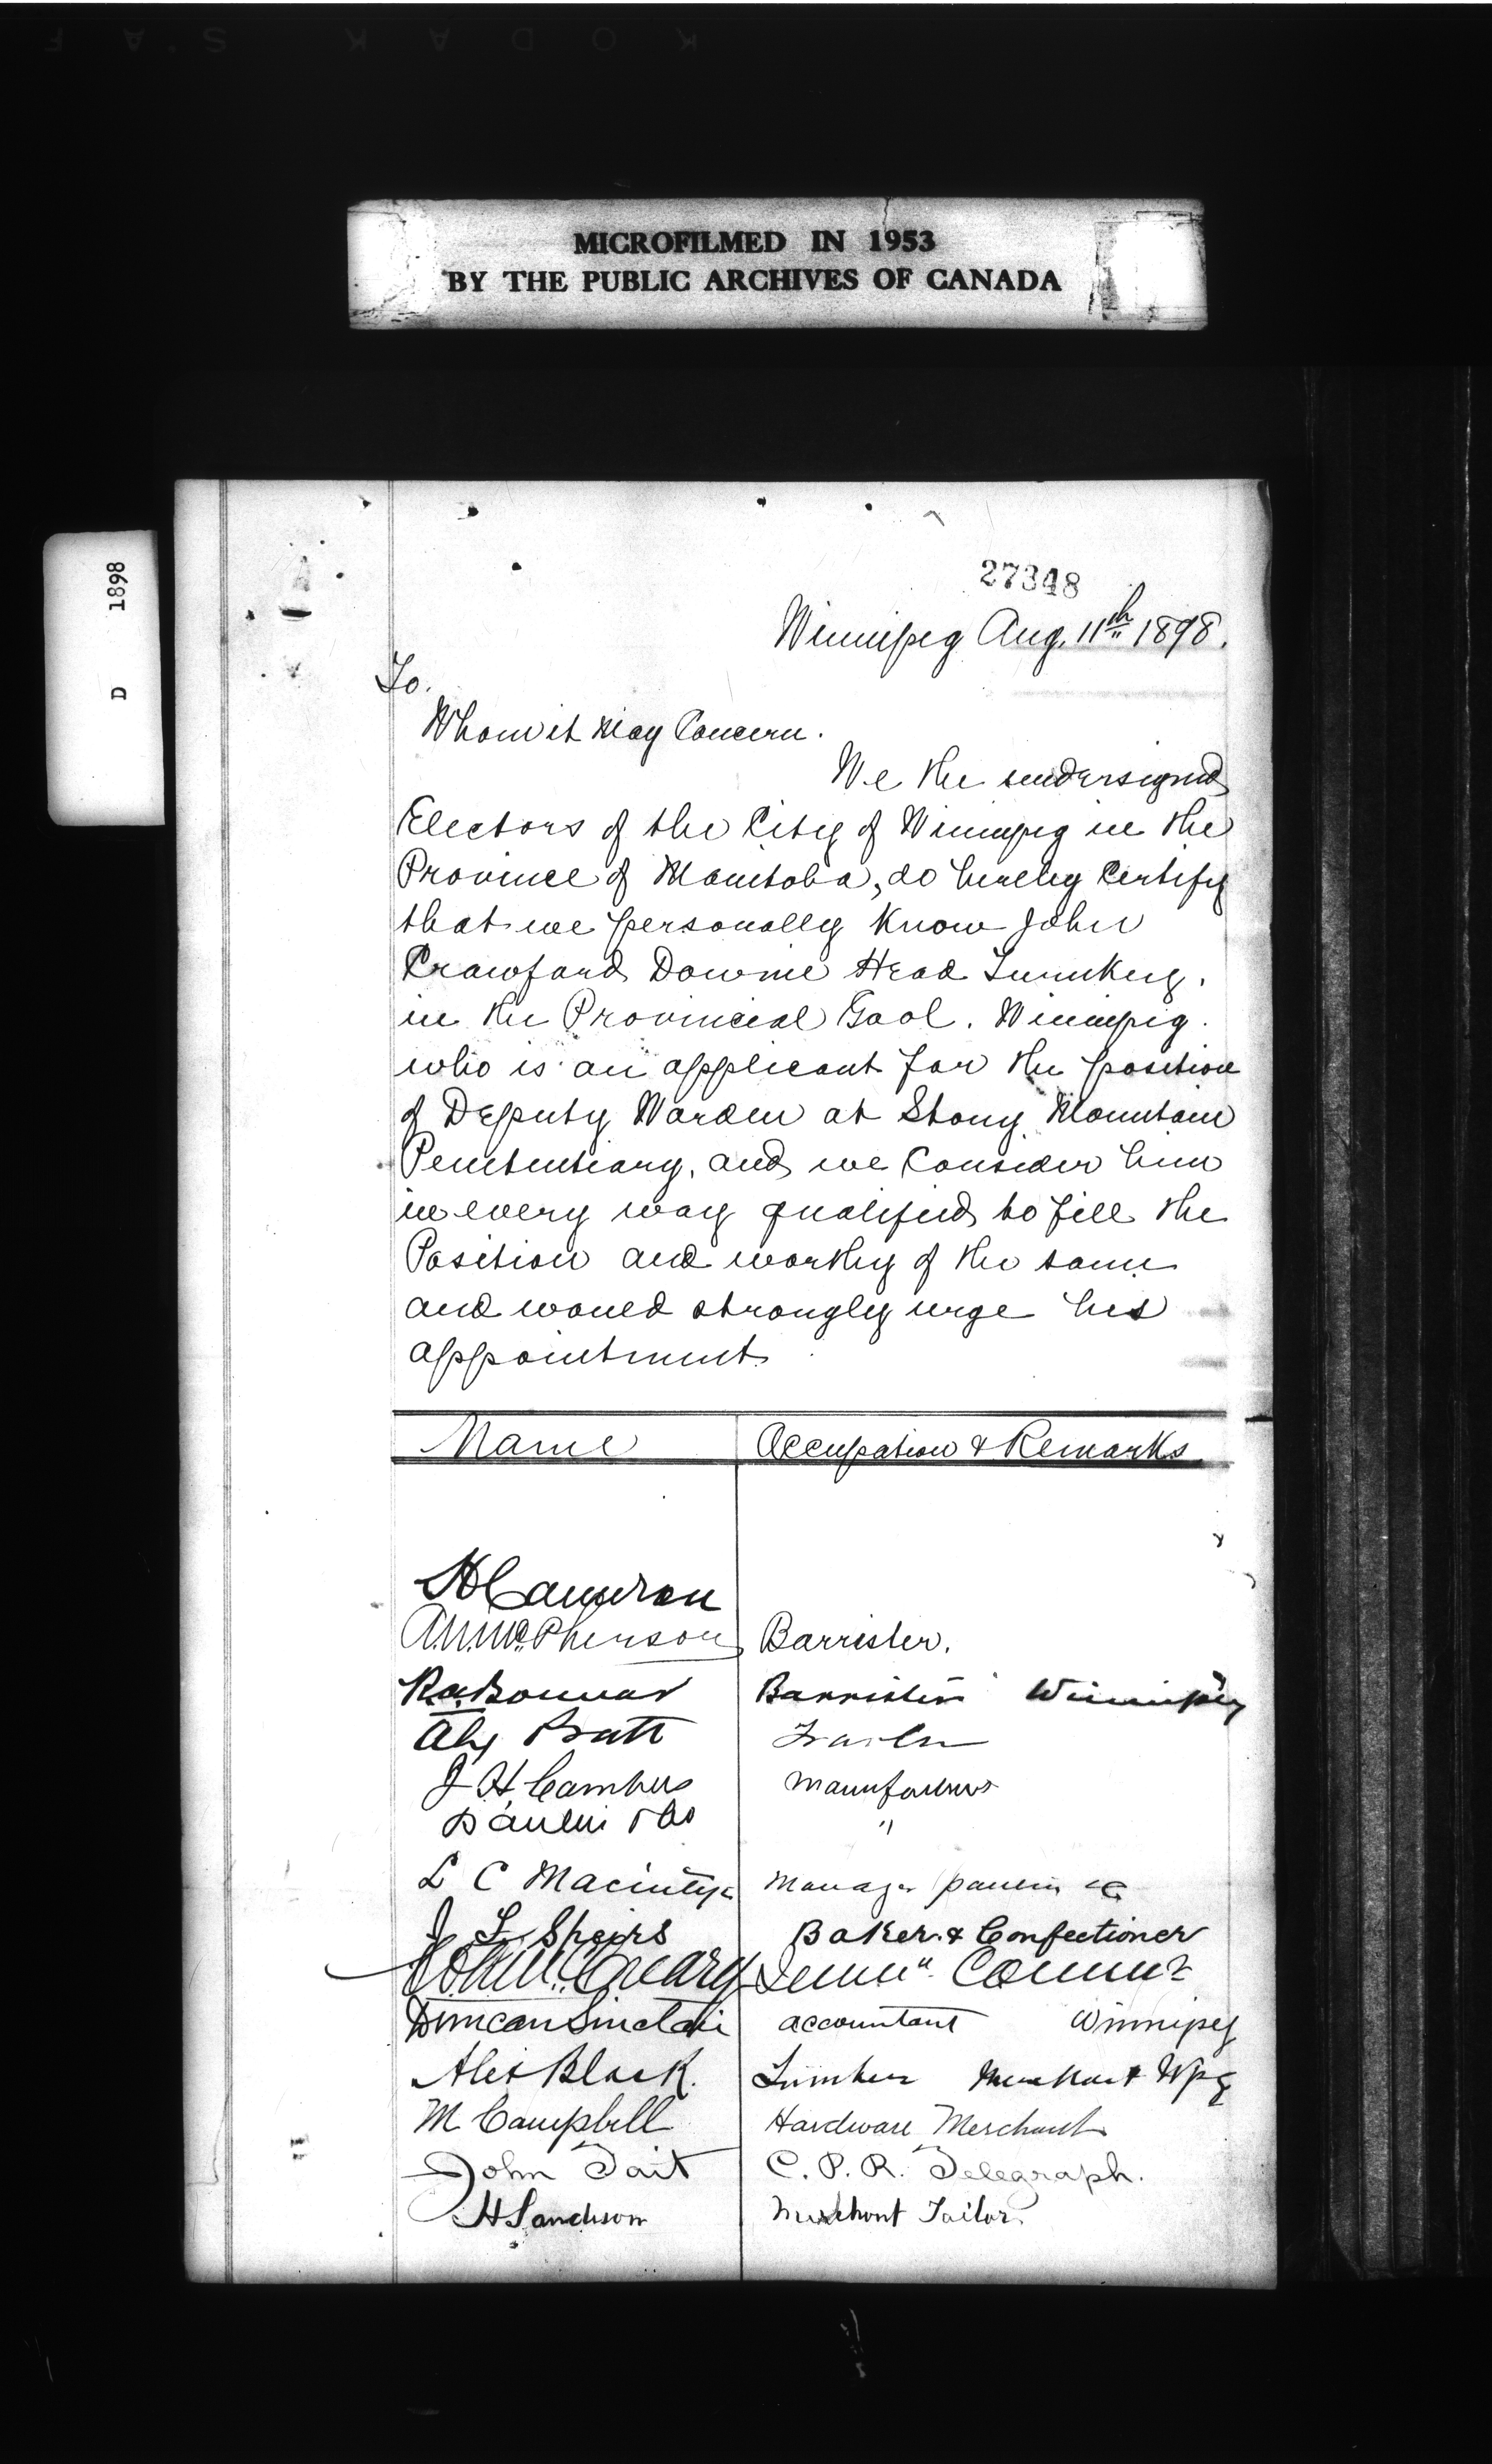 MICROFILMED IN 1953
BY THE PUBLIC ARCHIVES OF CANADA
D 1898
27348
Winnipeg Aug. 11th 1898.
To.
Whom it May Concern.
We the undersigned
Electors of the City of Winnipeg in the
Province of Manitoba, do hereby Certify
that we personally Know John
Crawford Downie Head Turnkey.
in the Provincial Gaol. Winnipeg.
who is an applicant for the position
of Deputy Warden at Stony Mountain
Penitentiary, and we Consider him
in every way qualified to fill the
Position and worthy of the same
and would strongly urge his
appointment.
Name Occupation & Remarks
H Cameron
McPherson Barrister.
Bonnar Barrister Winnipeg
Alex Pratt
J H Manufacturer
Paulin "
L C Macintyre Manager Paulin
J. L. Speirs Baker & Confectioner
McCreary
Duncan Sinclair accountant Winnipeg
Alex Black. Lumber Merchant Wpg
M Campbell Hardware Merchant
John Tait C. P. R. Telegraph.
H Sanderson Merchant Tailor.